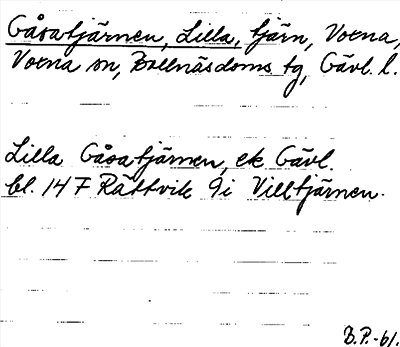 Gåsatjärnen, Lilla, tjärn, Voxna,
Voxna sn, Bollnäs doms. tg, Gävl. l.
Lilla Gåsatjärnen, ek Gävl.
bl. 14 F Rättvik 9i Villtjärnen.
B.P.-61.